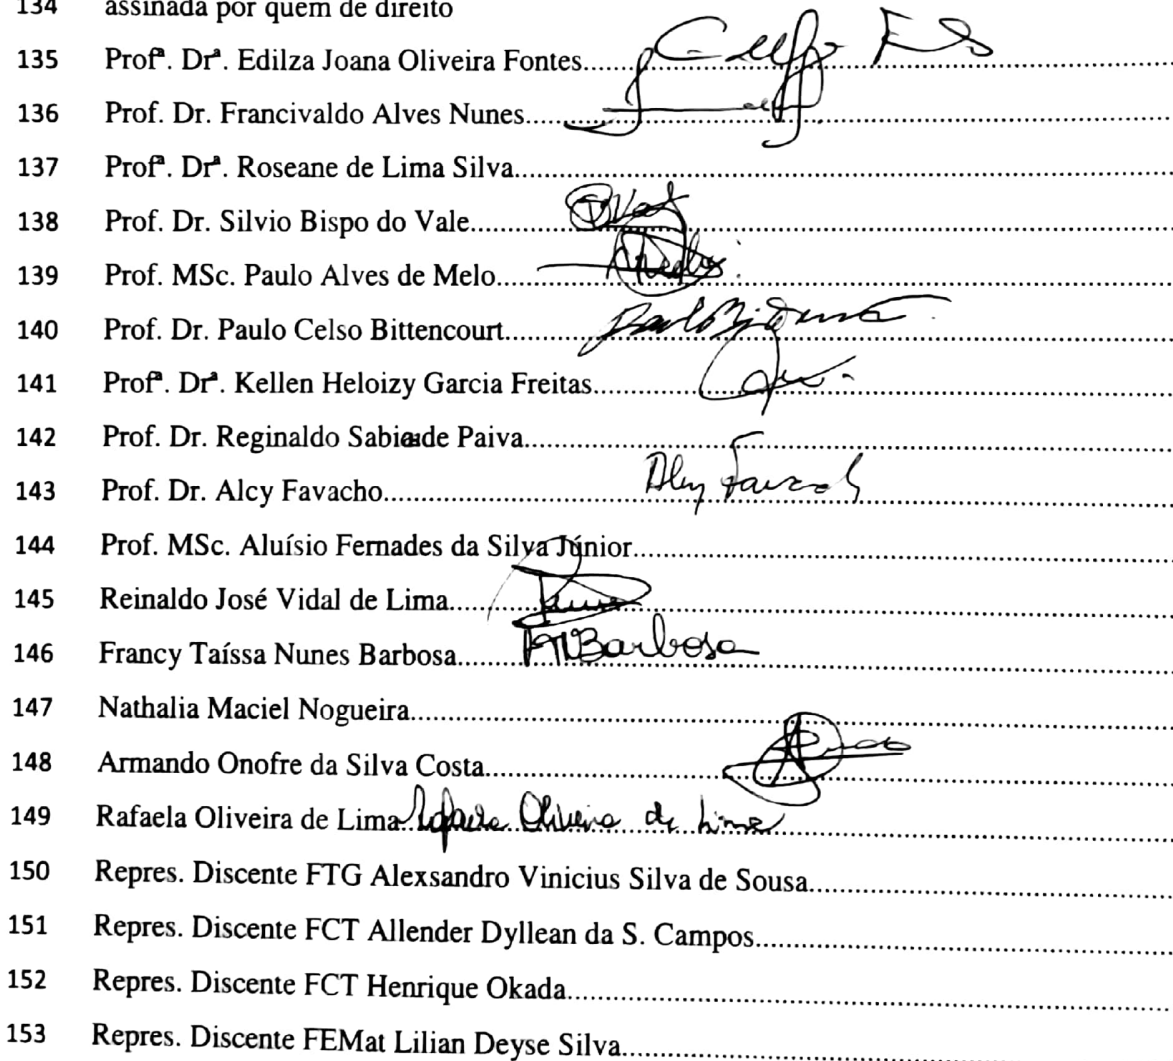 134 assinada por quem de direito
135 Profª. Drª. Edilza Joana Oliveira Fontes
136 Prof. Dr. Francivaldo Alves Nunes
137 Profª. Drª. Roseane de Lima Silva
138 Prof. Dr. Silvio Bispo do Vale
139 Prof. MSc. Paulo Alves de Melo
140 Prof. Dr. Paulo Celso Bittencourt
141 Profª. Drª. Kellen Heloizy Garcia Freitas
142 Prof. Dr. Reginaldo Sabiá de Paiva
143 Prof. Dr. Alcy Favacho Alcy Favacho
144 Prof. MSc. Aluísio Fernades da Silva Júnior
145 Reinaldo José Vidal de Lima
146 Francy Taíssa Nunes Barbosa Barbosa
147 Nathalia Maciel Nogueira
148 Armando Onofre da Silva Costa
149 Rafaela Oliveira de Lima Rafaela Oliveira de Lima
150 Repres. Discente FTG Alexsandro Vinicius Silva de Sousa
151 Repres. Discente FCT Allender Dyllean da S. Campos
152 Repres. Discente FCT Henrique Okada
153 Repres. Discente FEMat Lilian Deyse Silva